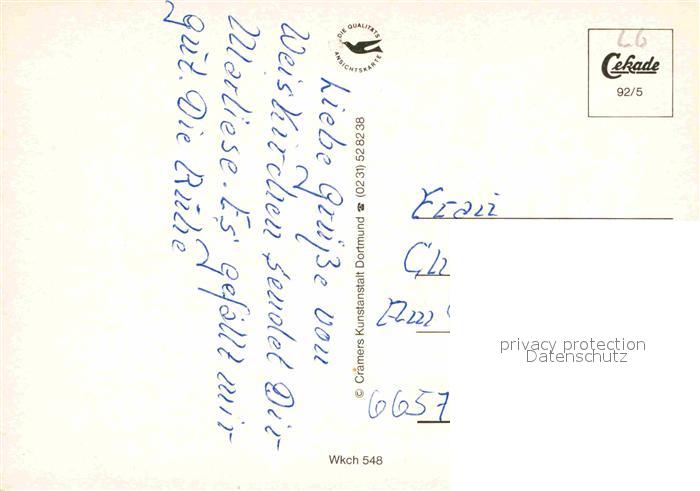 Liebe Grüße von
Weiskirchen sendet Dir
Marliese. Es gefällt mir
gut. Die Ruhe
DIE QUALITÄTS
ANSICHTSKARTE
© Cramers Kunstanstalt Dortmund ☎ (0231) 528238
Wkch 548
66
Cekade
92/5
Frau
Ch
Am
6657
privacy protection
Datenschutz